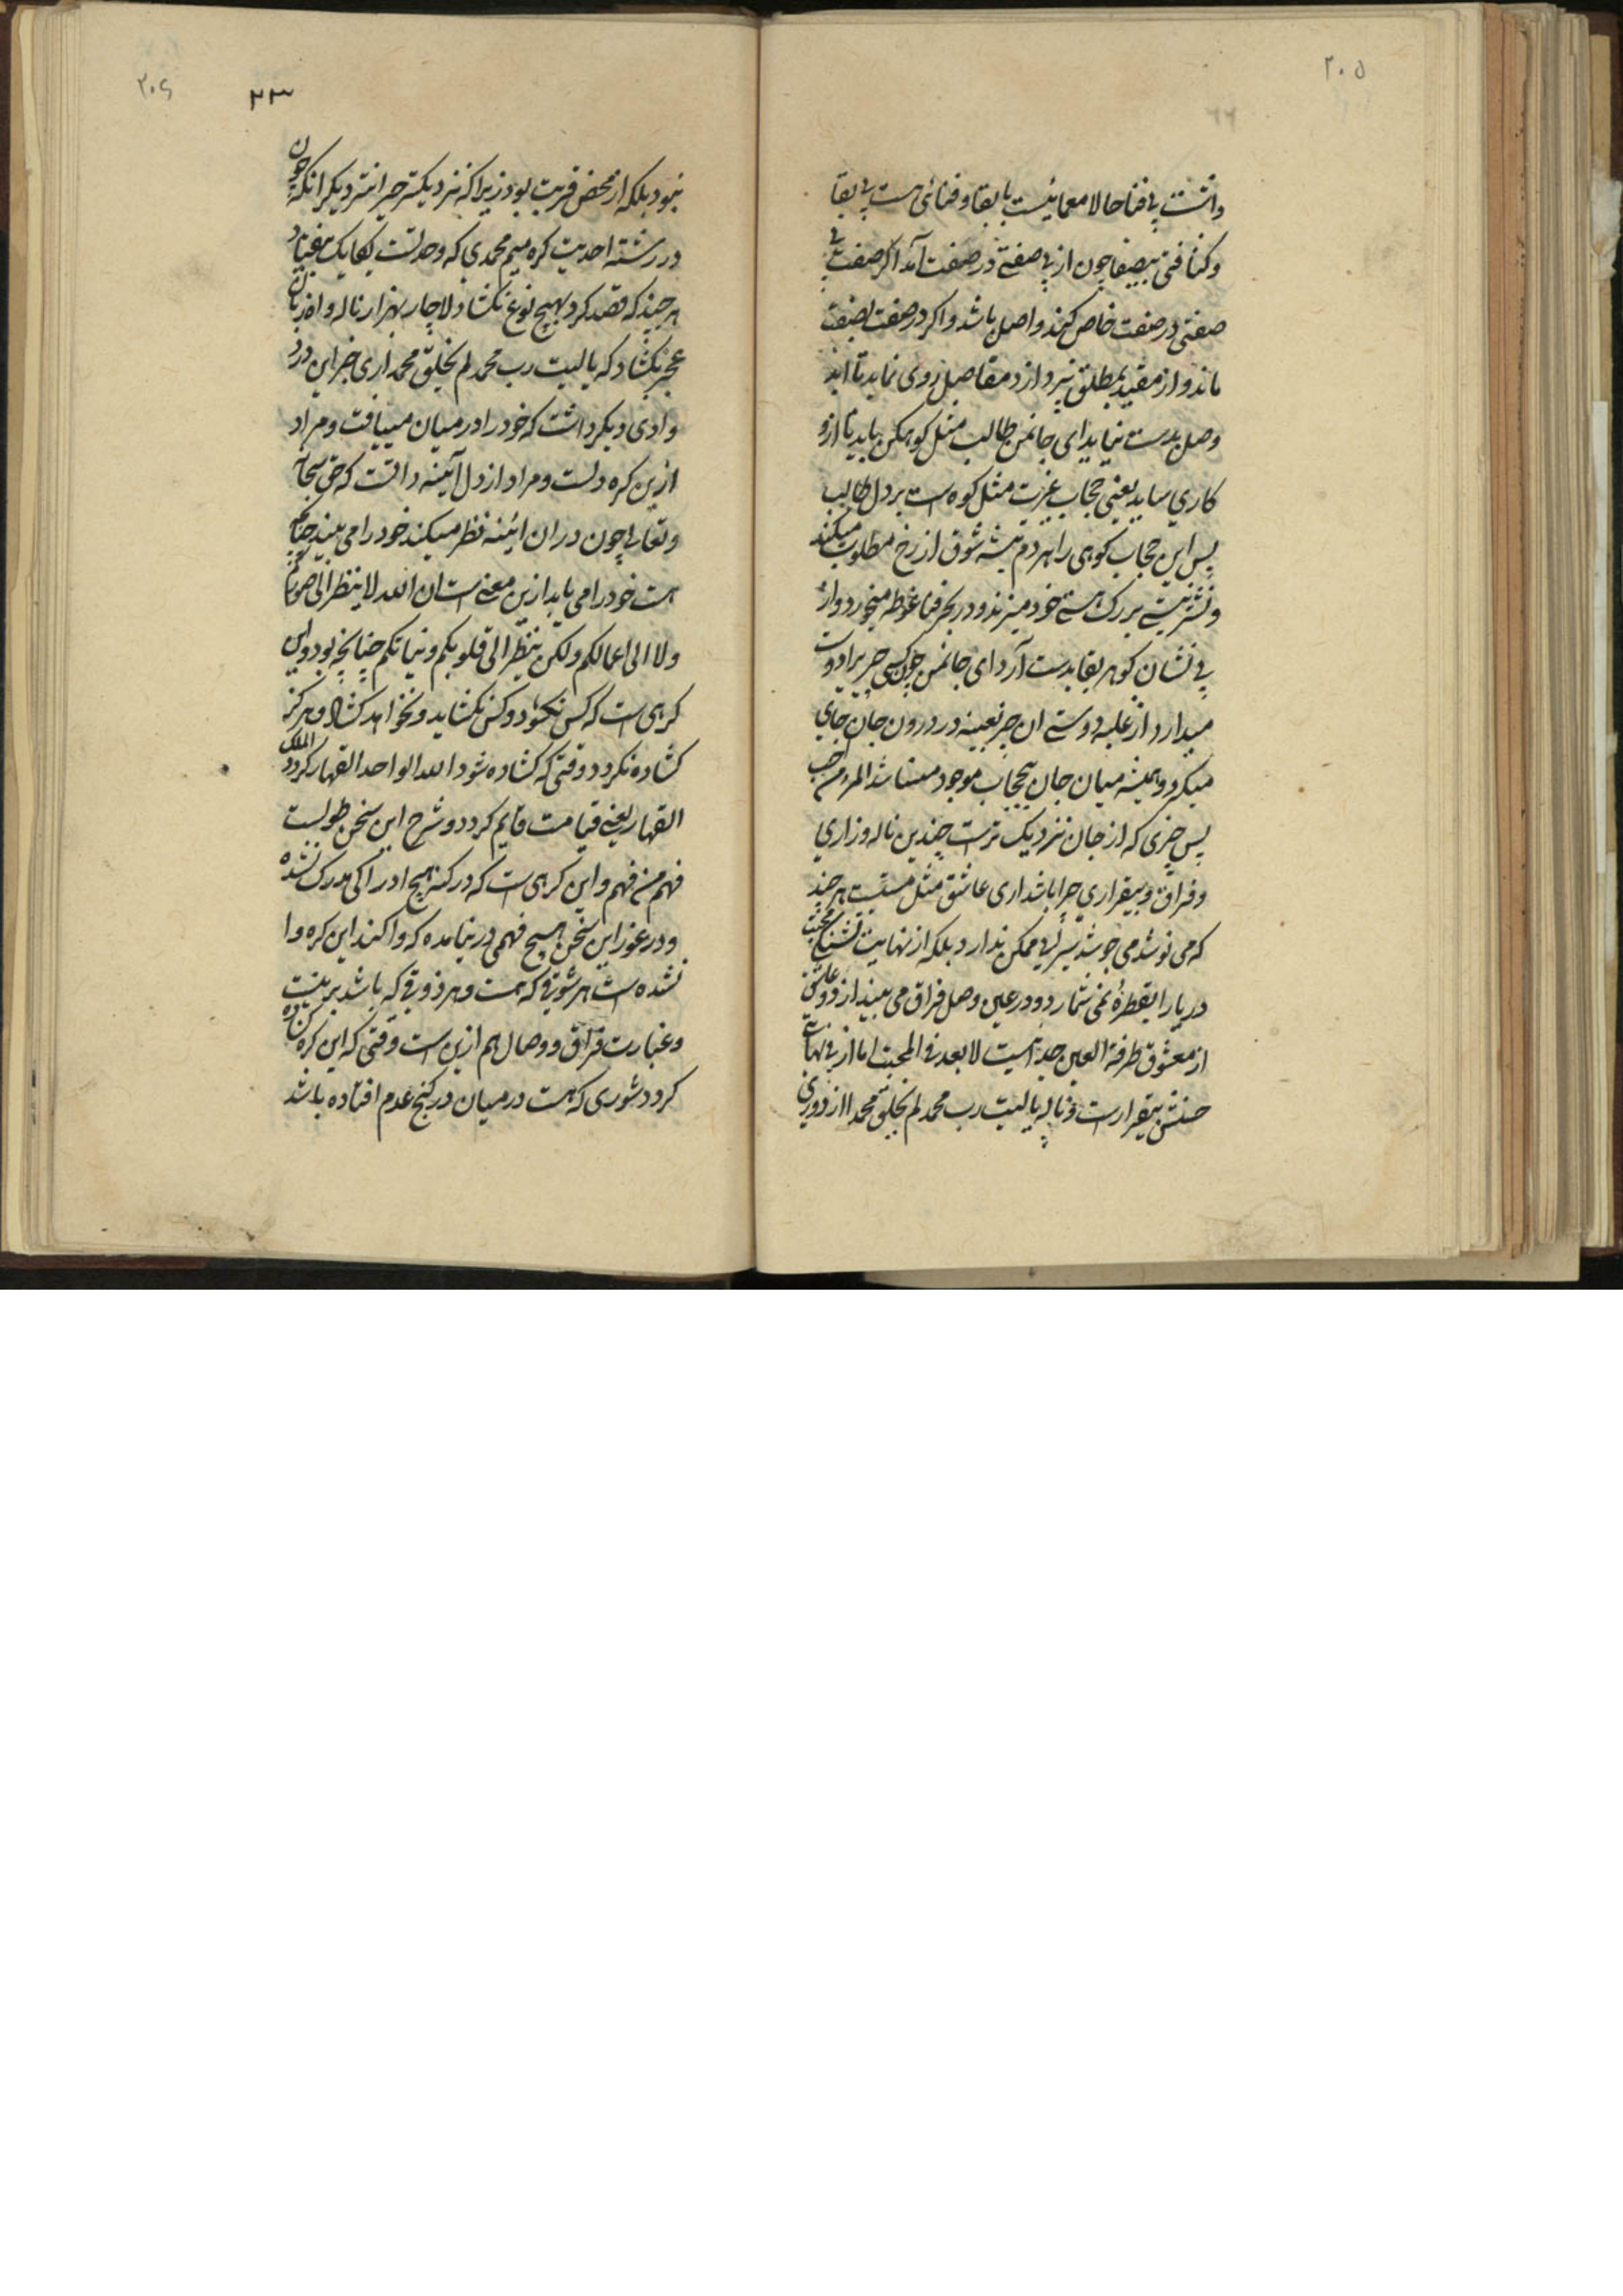 ۲۰۵
۶۶
دانست بی فنا حالا معمائیست با بقا و فنائی هست بی بقا
چون از بی صفتی در صفت آمد اکر صفت بی
صفتی در صفت خاص کیند واصل باشد و اکر در صفت بصفت
ماند و از مقید بمطلق نپردازد مقاصل روی نماید تا ابد
وصل بدست نیاید ای جانمن طالب مثل کوهکن باید تا ازو
کاری بیاید یعنی حجاب عزت مثل کوه است بر دل طالب
پس این حجاب کوهی را هر دم بتیشه شوق از رخ مطلوب میکند
و نشتر نیستی بر رک هستی خود میزند و در بحر فنا غوطه میخورد و از
بی نشان کوهر بقا بدست آرد ای جانمن چون کسی چیزیرا دوست
میدارد از غلبه دوستی ان چیز بعینه در درون جان جای
میکرد و همیشه میان جان بیحجاب موجود میباشد المرء من احب
پس چیزی که از جان نزدیک تر است چندین ناله و زاری
و فراق و بیقراری چرا باشد اری عاشق مثل مستسقیست هر چند
که می نوشد می جوشد سیرابی ممکن ندارد بلکه از نهایت تشنکی محبت
دریا را بقطرهٔ نمی شمارد و در عین وصل فراق می بیند از دو عاشق
از معشوق طرفة العین جدا نیست لا بعد فی المحبت اما از بی نهایت
حسنش بیقرار است و ناله یا لیت رب محمد لم یخلق محمدا از دوری
۲۰۶
۲۳
نبود بلکه از محض قربت بود زیرا که نزدیکتر حیرانتر دیکر انکه چون
در رشته احدیت کره میم محمدی که وحدتست یکایک بیفتاد
هر چند که قصد کرد بهیچ نوع نکشاد لاچار بهزار ناله و اه زبان
عجز بکشاد که یا لیت رب محمد لم یخلق محمدا اری خبر این درد
وادی دیکر داشت که خود را در میان مییافت و مراد
ازین کره دلست و مراد از دل آئینه داتست که حق سبحانه
و تعالی چون در ان ائینه نظر میکند خود را می بیند چنانکه
هست خود را می یابد ازین معنی است ان الله لا ینظر الی صورکم
ولا الی اعمالکم ولکن ینظر الی قلوبکم و نیاتکم چنانچه بود و این
کرهی است که کس نکشود و کس نکشاید و نخواهد کشاد و هرکز
کشاده نکردد وقتی که کشاده شود الله الواحد القهار کردد الملک
القهار یعنی قیامت قایم کردد و شرح این سخن طولست
فهم من فهم و این کرهی است که در کنه هیچ ادراکی مدرک نشده
و در غور این سخن هیچ فهمی در نیامده که واکند این کره وا
نشده است هر شوقی که هست و هر ذوقی که باشد برینست
و عبارت فراق و وصال هم ازین است وقتی که این کره کشاده
کردد شوری که هست در میان در کنج عدم افتاده باشد